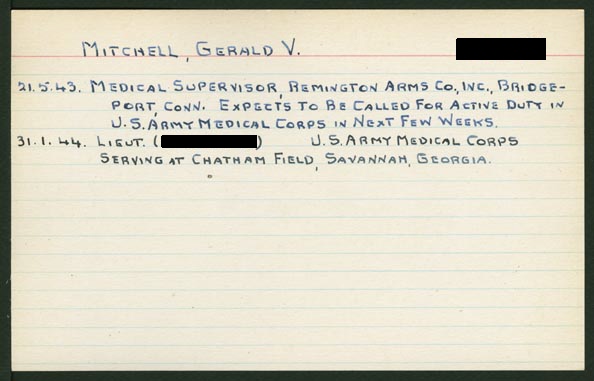 MITCHELL, GERALD V.
21.5.43. MEDICAL SUPERVISOR, REMINGTON ARMS CO., INC., BRIDGE-
PORT, CONN. EXPECTS TO BE CALLED FOR ACTIVE DUTY IN
U.S. ARMY MEDICAL CORPS IN NEXT FEW WEEKS.
31.1.44. LIEUT. ( ) U.S. ARMY MEDICAL CORPS
SERVING AT CHATHAM FIELD, SAVANNAH, GEORGIA.